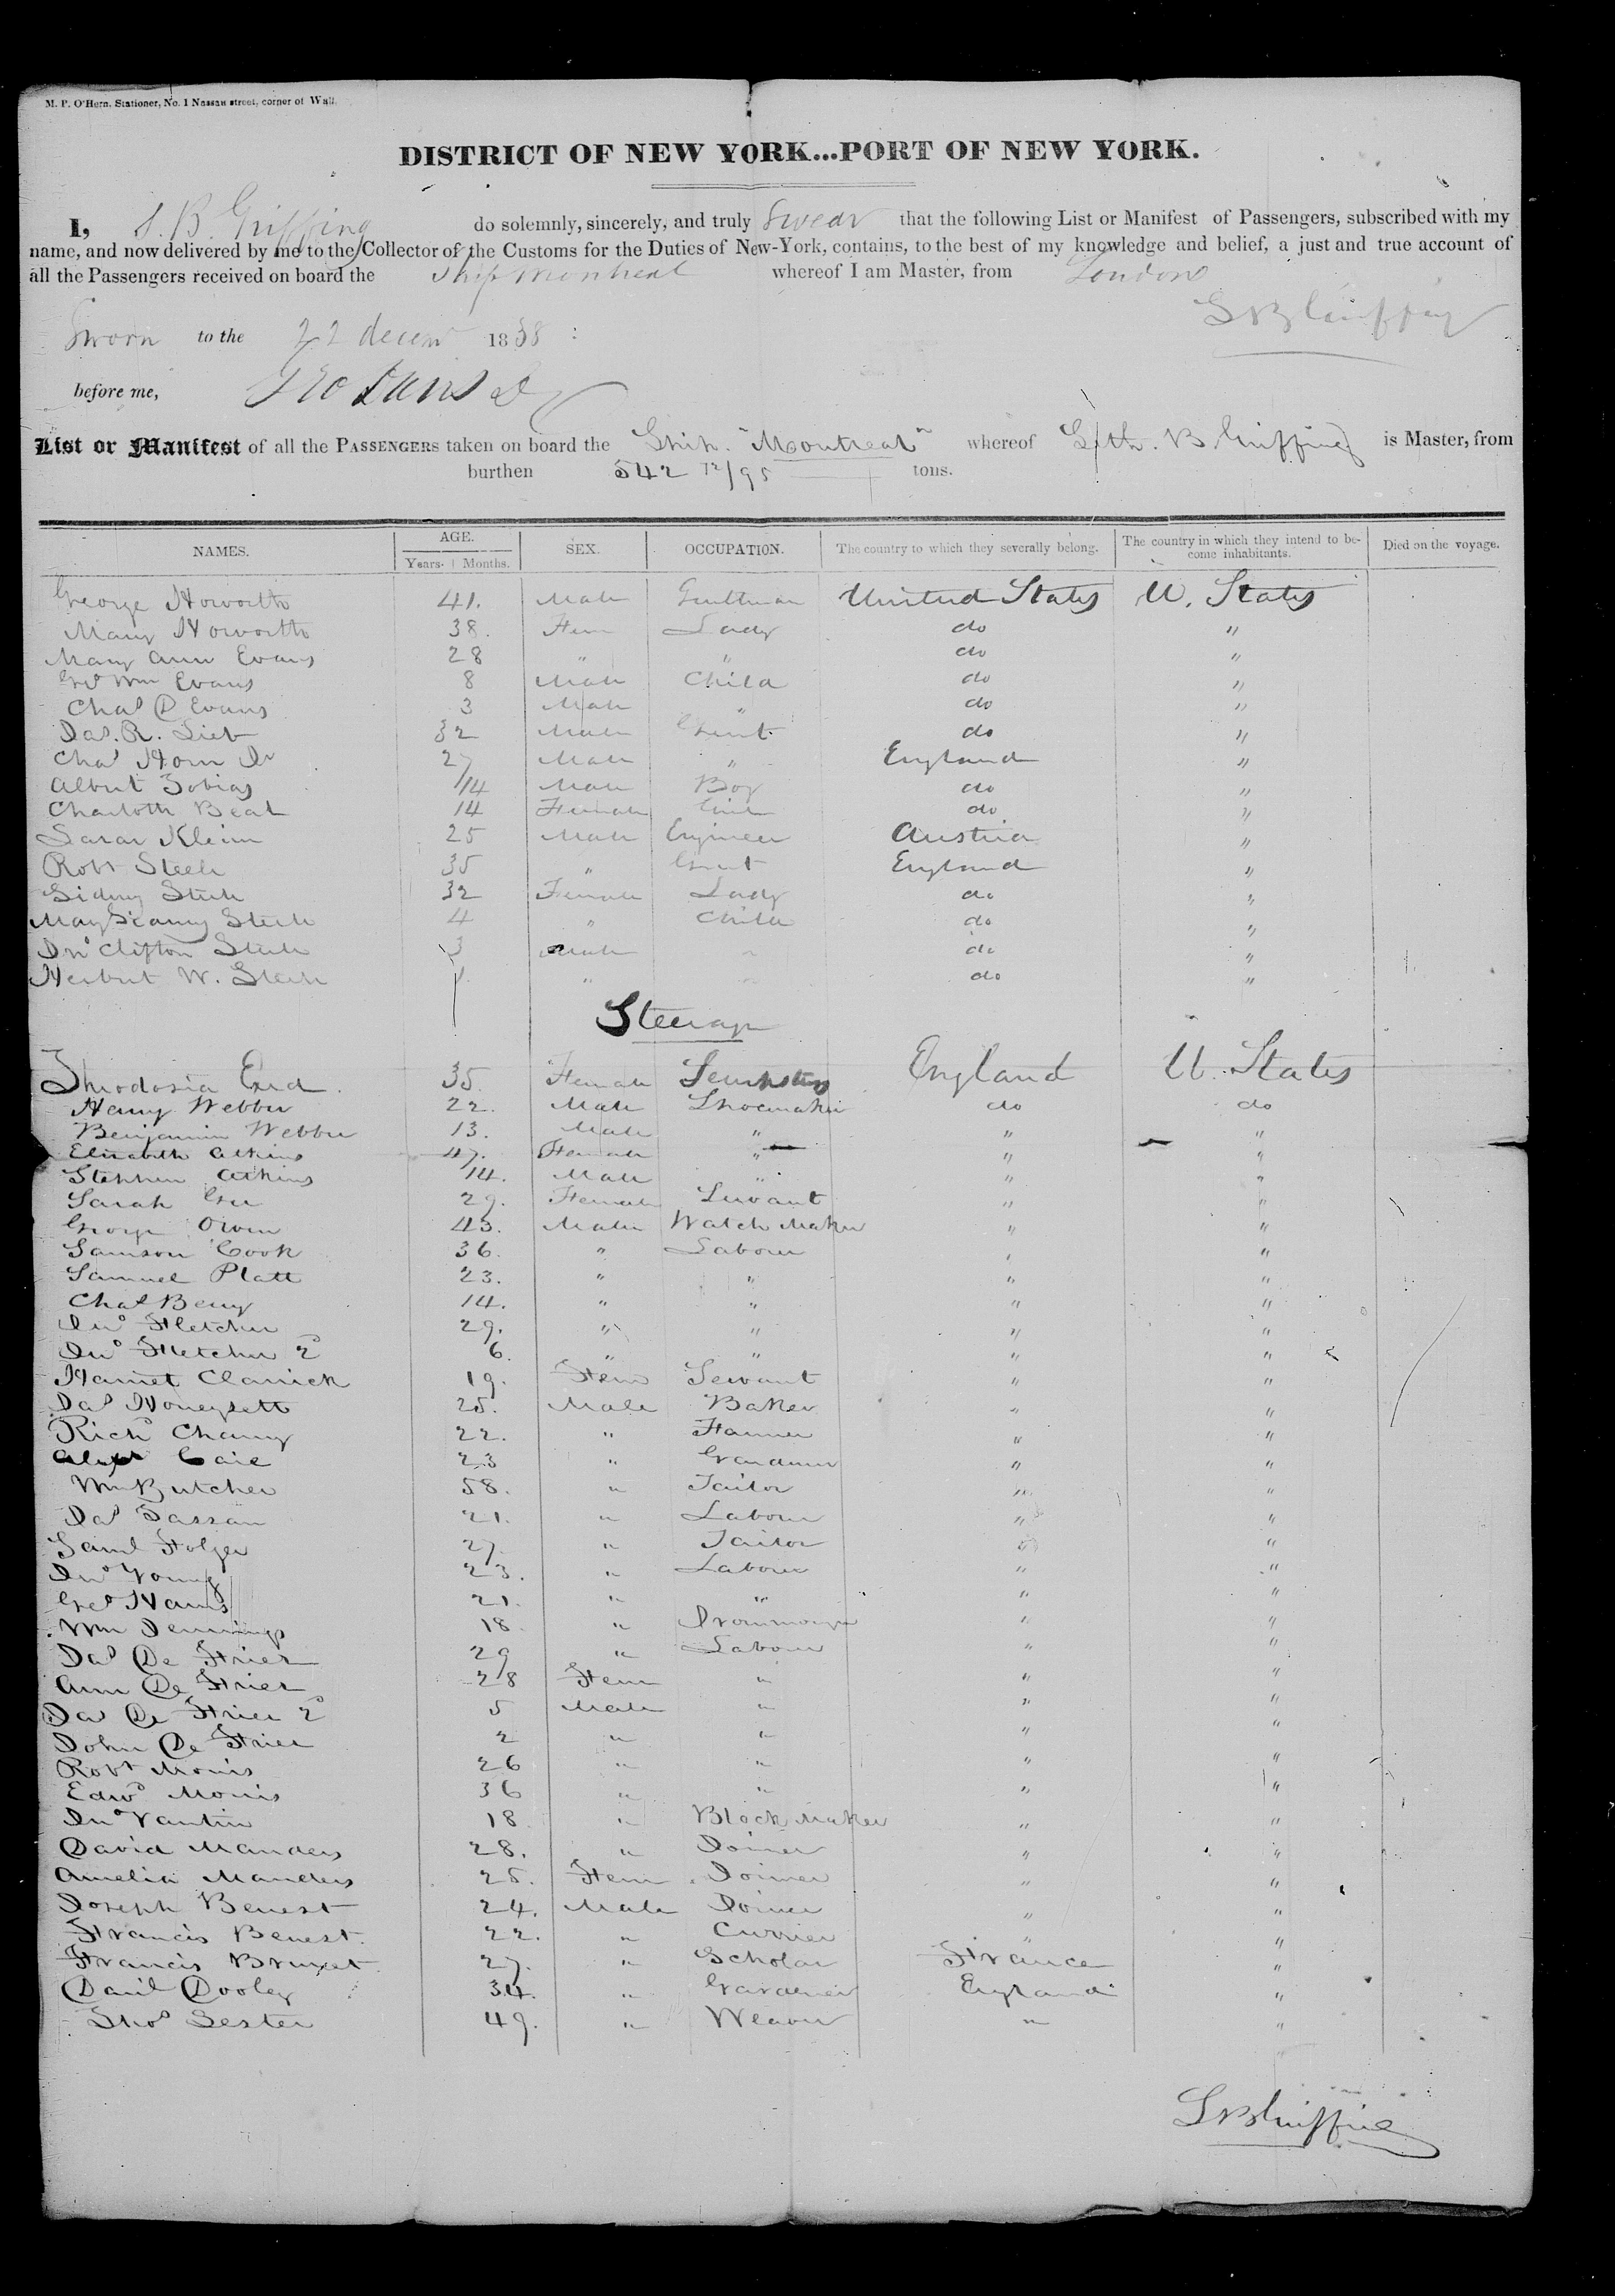 M. P. O'Hern, Stationer, No. 1 Nassau street, corner of Wall.
DISTRICT OF NEW YORK...PORT OF NEW YORK.
I, S. B. Griffing do solemnly, sincerely, and truly Swear that the following List or Manifest of Passengers, subscribed with my
name, and now delivered by me to the Collector of the Customs for the Duties of New-York, contains, to the best of my knowledge and belief, a just and true account of
all the Passengers received on board the Ship Montreal whereof I am Master, from London
S B Griffing
Sworn to the 22 decem 1838 :
before me,
List or Manifest of all the PASSENGERS taken on board the Ship "Montreal" whereof Seth. B Griffing is Master, from
burthen 542 72/95 tons.
NAMES. AGE. SEX. OCCUPATION. The country to which they severally belong. The country in which they intend to become inhabitants. Died on the voyage.
Years. Months.
George Howorth 41. Male Gentleman United States U. States
Mary Howorth 38. Fem Lady do "
Mary Ann Evans 28 " " do "
Geo Wm Evans 8 Male Child do "
Chas D Evans 3 Male " do "
Jas. R. Lieb 32 Male Gent. do "
Chas Horn Jr 27 Male " England "
Albert Tobias 14 Male Boy do "
Charlotte Beal 14 Female Girl do "
Kleim 25 Male Engineer Austria "
Robt Steele 35 " Gent England "
Sidney Steele 32 Female Lady do "
Mary Steele 4 " Child do "
Jno Clifton Steele 3 Male " do "
Herbert W. Steele 1 " " do "
Steerage
Theodosia 35. Female England U. States
Henry Webber 22. Male Shoemaker do do
Benjamin Webber 13. Male " " "
Elizabeth Atkins 47. Female " " "
Stephen Atkins 14. Male " " "
Sarah 29. Female Servant " "
George Owen 43. Male Watch Maker " "
Samson Cook 36. " Labourer " "
Samuel Platt 23. " " " "
Chas Berry 14. " " " "
Jno Fletcher 29. " " " "
Jno Fletcher 2d 6. " " " "
Harriet Clarrick 19. Fem Servant " "
Jas Honeysett 25. Male Baker " "
Richd 22. " Farmer " "
Alexr Caie 23 " Gardener " "
Wm Butcher 58. " Tailor " "
Jas 21. " Labourer " "
Saml Folger 27. " Tailor " "
Jno Young 23. " Labourer " "
Geo Harris 21. " " " "
Wm Jennings 18. " " "
Jas De Frier 29 " Labour " "
Ann De Frier 28 Fem " " "
Jas De Frier 2d 5 Male " " "
John De Frier 2 " " " "
Robt Morris 26 " " " "
Edwd Morris 36 " " " "
Jno Vantin 18 " Block Maker " "
David Manders 28. " Joiner " "
Amelia Manders 25. Fem Joiner " "
Joseph Benest 24. Male Joiner " "
Francis Benest 22. " Currier " "
Francis Bruxet 27. " Scholar France "
Danl Dooley 34. " Gardener England "
Thos Sester 49. " Weaver " "
S B Griffing